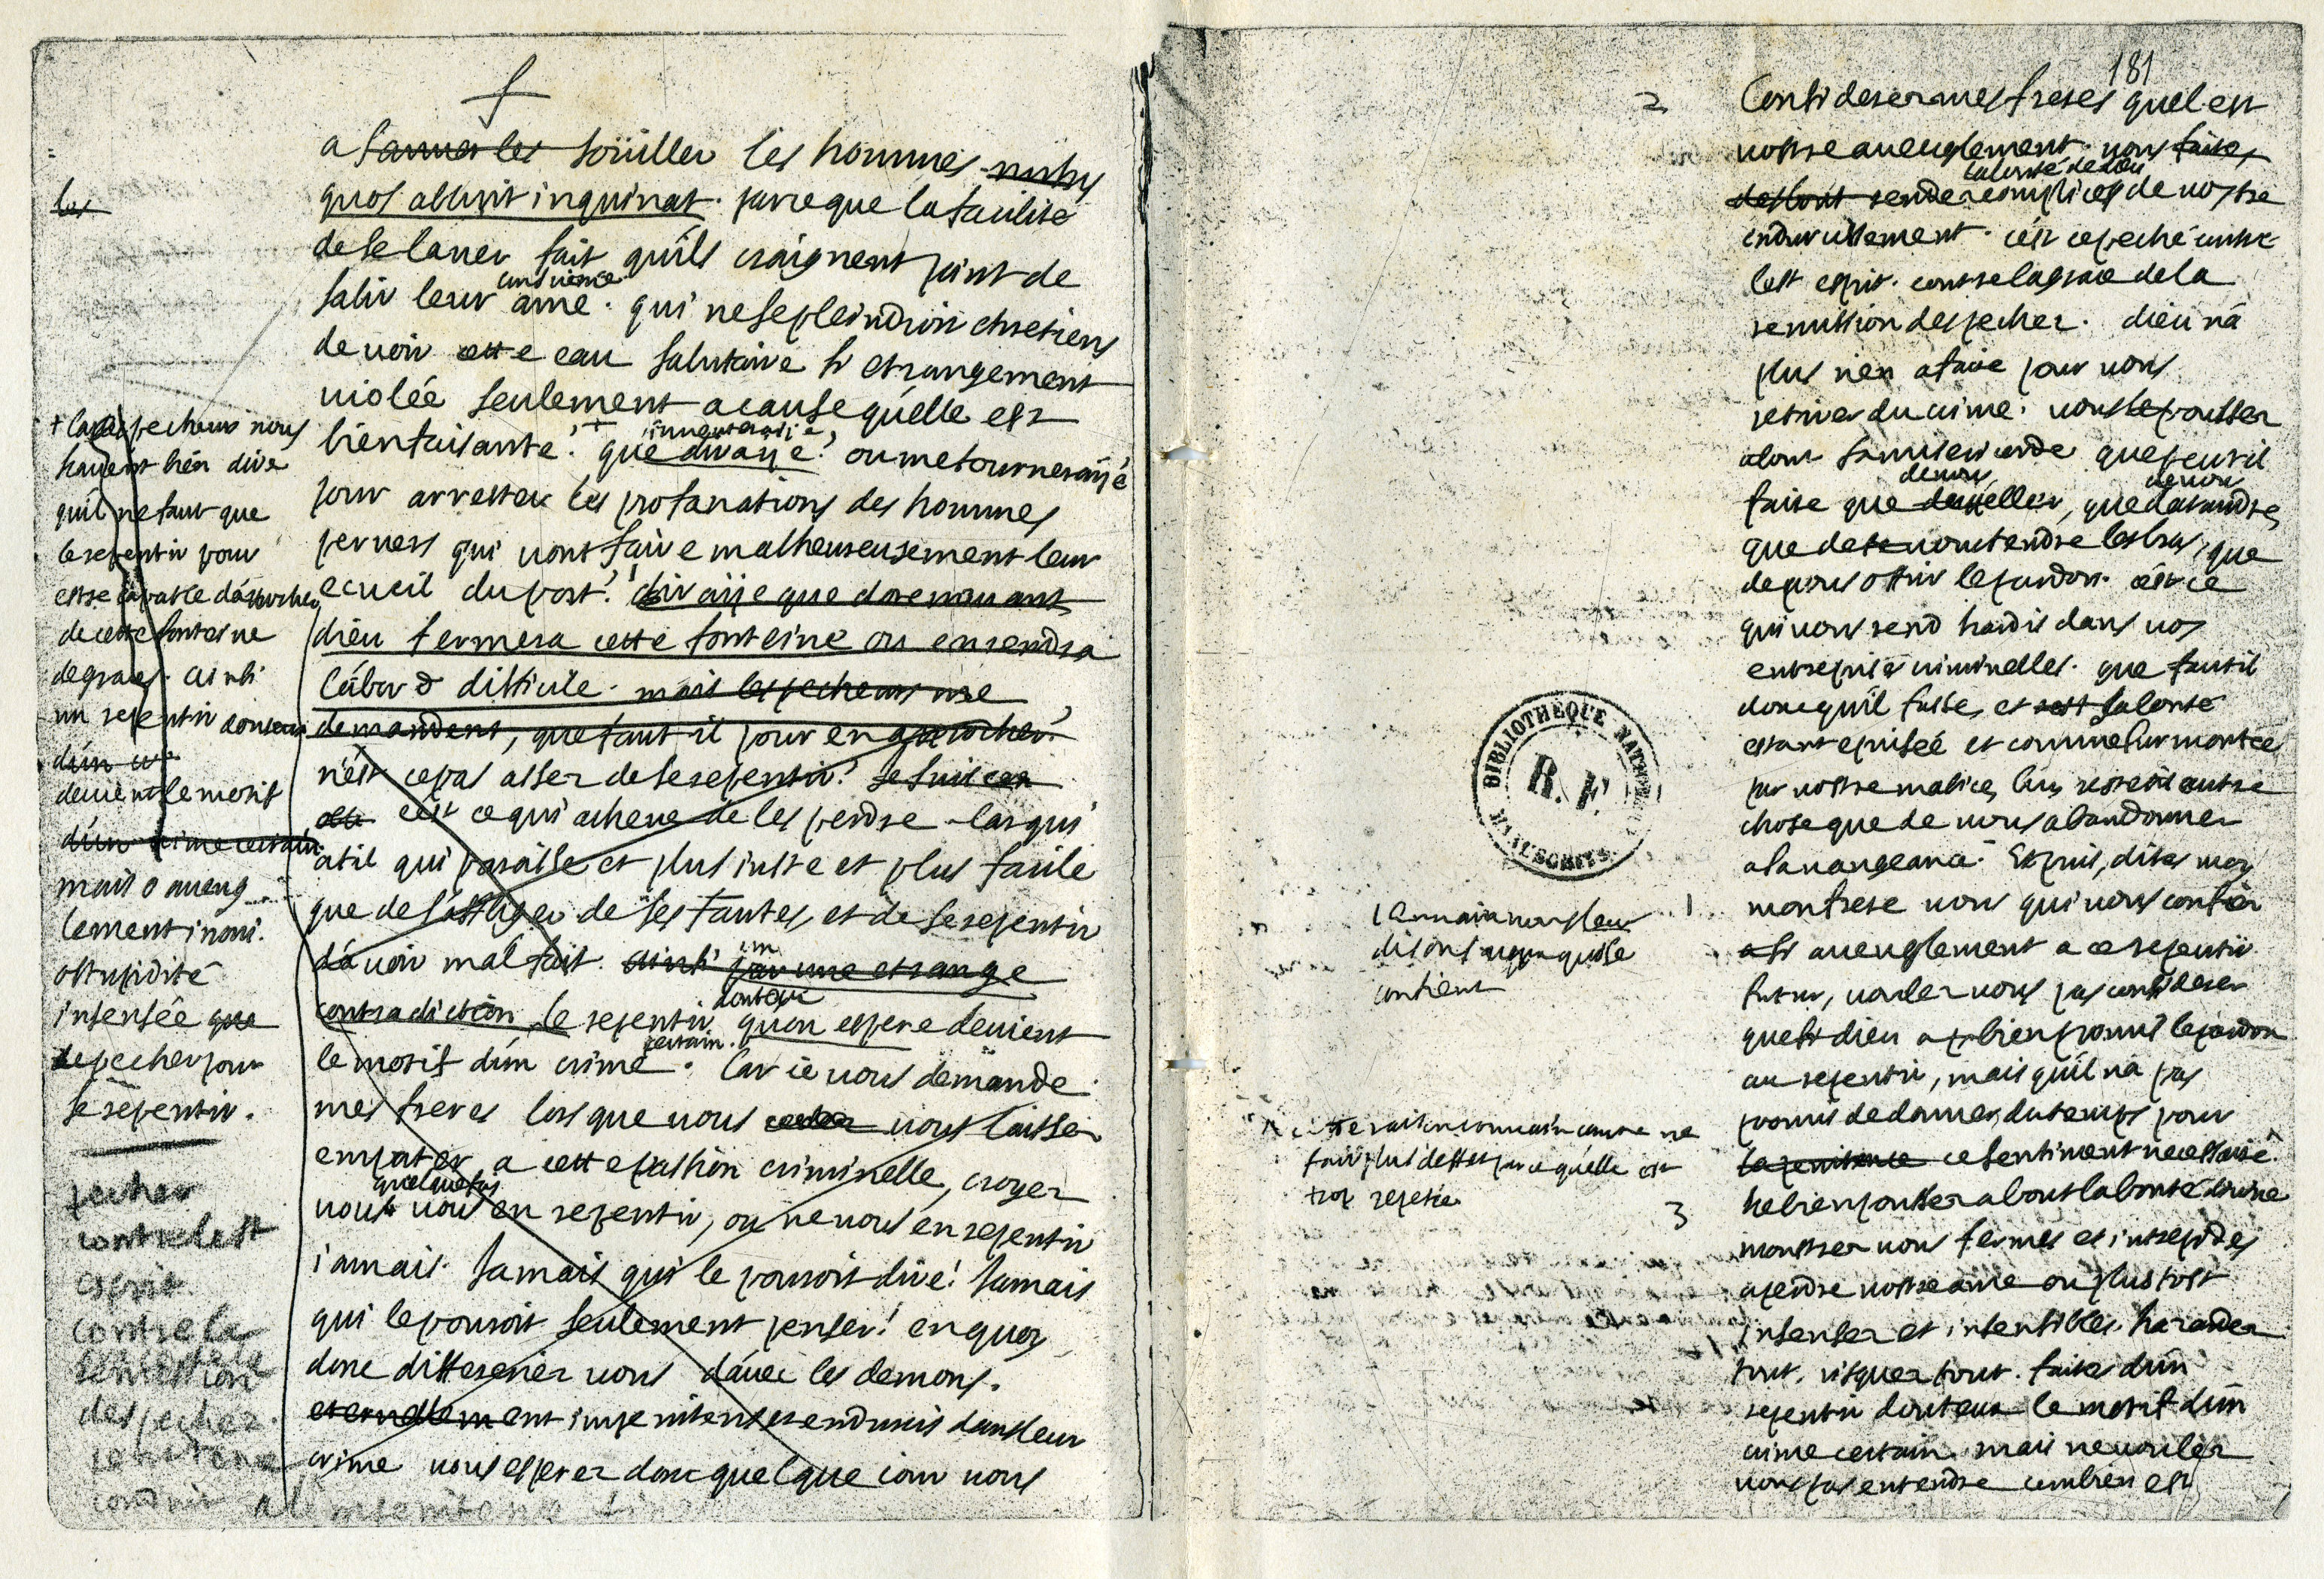 a sauver les soüiller les hommes
quos abluit inquinat. parce que la facilité
de se laver fait qu'ils craignent point de
conscience
salir leur ame. qui ne se pleindroit chrestiens
de voir cette eau salutaire si etrangement
violée seulement a cause qu'elle est
bienfaisante? + que diraije? ou me tourneraije
pour arrester les profanations des hommes
pervers qui vont faire malheureusement leur
ecueil du port? diraije que dorenavant
dieu fermera cette fonteine ou en rendra
l'abord difficile. mais les pecheurs me
demandent, que faut il pour en approcher?
n'est ce pas assez de se repentir? je suis
c'est ce qui acheve de les perdre car qui
a til qui paroisse et plus iuste et plus facile
que de s'affliger de ses fautes, et de se repentir
d'avoir mal fait. ainsi par une etrange
un
contradiction, le repentir qu'on espere devient
douteux
le motif d'un crime. Car ie vous demande
certain.
mes freres lors que vous vous laissez
emporter a cette passion criminelle, croyez
quelquefois
vous vous en repentir, ou ne vous en repentir
iamais. Jamais qui le pouroit dire! Jamais
qui le pouroit seulement penser! en quoy
donc differeriez vous d'avec les demons.
eternellement impenitens et endurcis dans leur
crime vous esperez donc quelque iour vous
les
+ les pecheurs nous
sauent bien dire
qu'il ne faut que
le repentir pour
estre capable d'approcher
de cette fonteine
de graces. ainsi
un repentir douteux
d'un
devient le motif
d'un crime certain
mais o aveug
lement inoui.
o stupidité
insensée que
de pecher pour
se repentir.
pecher
contre le st
esprit
contre la
remission
des pechez.
conduit a l'impenitence
181
2 Considerez mes freres quel est
vostre aveuglement. vous faites
la bonté de dieu
rendez complices de vostre
endurcissement. c'est ce peché contre
le st esprit. contre la grace de la
remission des pechez. dieu n'a
plus rien a faire pour vous
retirer du crime. vous poussez
a bout sa misericorde que peut il
de vous de vous
faire que d'appeller, que d'attendre,
que de vous tendre les bras, que
de vous offrir le pardon. c'est ce
qui vous rend hardis dans vos
entreprises criminelles. que faut il
donc qu'il fasse, et sa bonté
estant epuisée et comme surmontée
par vostre malice, luy reste til autre
chose que de vous abandonner
a la vangeance. Et puis, dites moy
1 montrere vous qui vous confiez
si aveuglement a ce repentir
futur, voulez vous pas considerer
que si dieu a bien promis le pardon
au repentir, mais qu'il n'a pas
promis de donner du temps pour
la penitence ce sentiment necessaire.
3 he bien poussez a bout la bonté divine
monstrez vous fermes et intrepides
a perdre vostre ame ou plustost
insensez et insensibles. hazardez
tout, risquez tout. faites d'un
repentir douteux le motif d'un
crime certain. mais ne voulez
vous pas entendre combien est
disons ce qu'elle
contient
cette raison convaincante ne
fait plus d'effet parce qu'elle est
trop repetée
BIBLIOTHEQUE NATIONALE
R. F.
MANUSCRITS